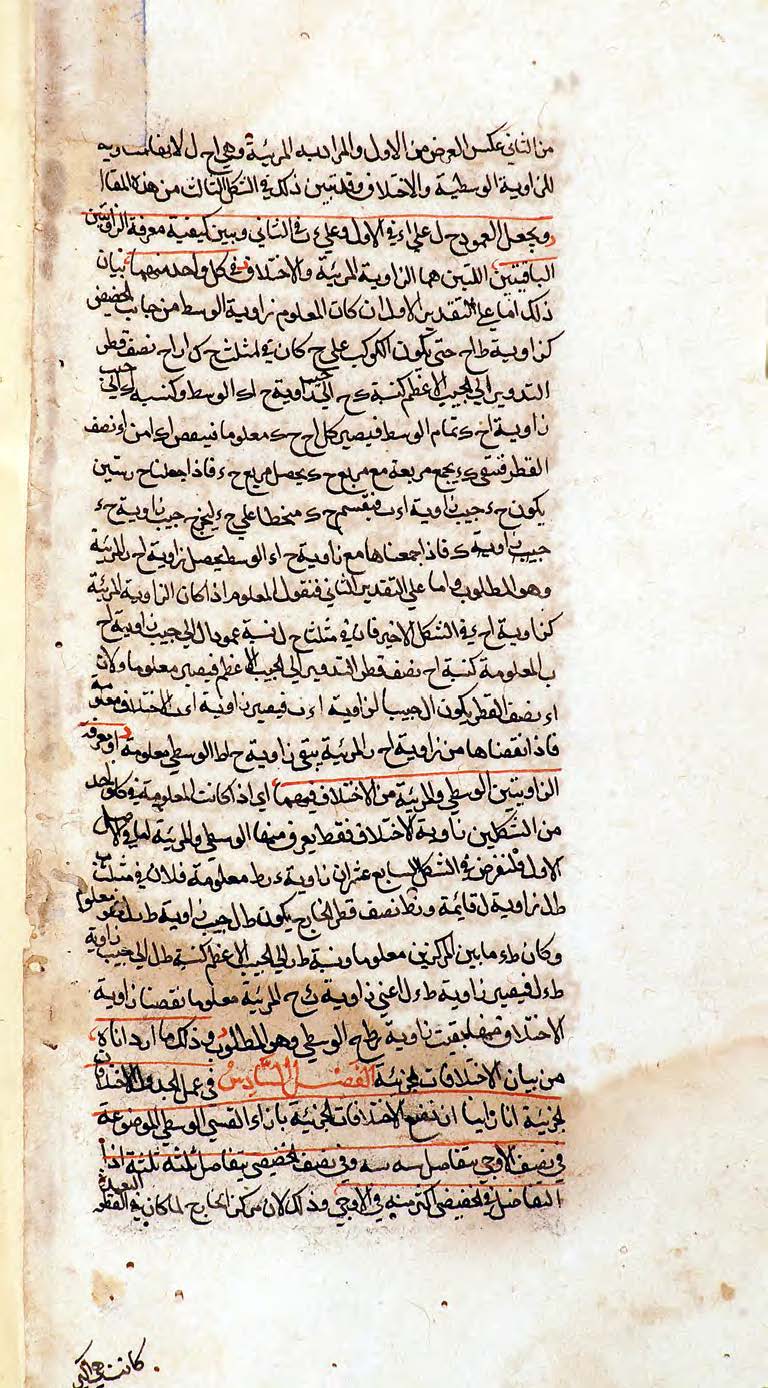 من الثاني عكس العرض من الاول والمراد به المرئية وهي اح ل لانها مساوية
للزاوية الوسطية والاختلاف وقد تبين ذلك في الشكل الثالث من هذه المقالة
ونجعل العمود ح ل علي اء في الاول وعلي ء ب في الثاني ونبين كيفية معرفة الزاويتين
الباقيتين اللتين هما الزاوية المرئية والاختلاف في كل واحد منهما بيان
ذلك اما علي التقدير الاول ان كانت المعلوم زاوية الوسط من جانب الحضيض
كزاوية ط ا ح حتي يكون الكوكب علي ح كان في مثلث ح ك ا ا ح نصف قطر
التدوير الي الجيب الاعظم كنسبة ك ح الي جيب زاوية ح ا ك الوسط وكنسبة ك ا الي جيب
زاوية ا ح ك تمام الوسط فيصير كل ا ح ح ك معلوما فينقص ك ا من ا ء نصف
القطر فتبقي ك ء يجمع مربعه مع مربع ح ك يحصل مربع ح ء فاذا جعلنا ح ر ستين
يكون ح ء جيب زاوية ا ء ب فنقسم ح ك منحطا علي ح ء ليخرج جيب زاوية ح ء
جيب زاوية ك فاذا جمعناها مع زاوية ح ا ء الوسط يحصل زاوية ا ح ر المرئية
وهو المطلوب واما علي التقدير الثاني فنقول المعلوم اذا كان الزاوية المرئية
كزاوية ا ح ء في الشكل الاخير فان في مثلث ا ح ل نسبة عمود ا ل الي جيب زاوية ا ح
ب المعلومة كنسبة ا ح نصف قطر التدوير الي الجيب الاعظم فيصير معلوما ولان
ا ء نصف القطر يكون ا ل جيبا لزاوية ا ء ب فيصير زاوية ا ء ب الاختلاف معلومة
فاذا نقصناها من زاوية ا ح ر المرئية يبقي زاوية ح ا ط الوسطي معلومة او نعرف
الزاويتين الوسطي والمرئية من الاختلاف فيهما اي اذا كانت المعلومة في كل واحد
من الشكلين زاوية الاختلاف فقط يعرف منها الوسطي والمرئية اما في الاصل
الاول فلنفرض في الشكل السابع عشر ان زاوية ء ر ط معلومة فلان في مثلث
ط ل ر زاوية ل قائمة و ر ط نصف قطر الخارج يكون ط ل جيب زاوية ط ر ل فهو معلوم
وكان ط ء ما بين المركزين معلوما ونسبة ط ء الي الجيب الاعظم كنسبة ط ل الي جيب زاوية
ط ء ل فيصير زاوية ط ء ل اعني زاوية ر ء ح المرئية معلوما نقصنا زاوية
الاختلاف منها بقيت زاوية ر ط ح الوسطي وهو المطلوب وذلك ما اردناه
من بيان الاختلافات الجزئية الفصل السادس في عمل الجداول للاختلافات
الجزئية انا راينا ان نضع الاختلافات الجزئية بازاء القسي الوسطي الموضوعة
في نصف الاوجي بتفاضل ستة ستة وفي نصف الحضيضي بتفاضل ثلثة ثلثة اذ
التفاضل في الحضيضي اكثر منه في الاوجي وذلك لان مركز الخارج لما كان في القطعة البعيدة